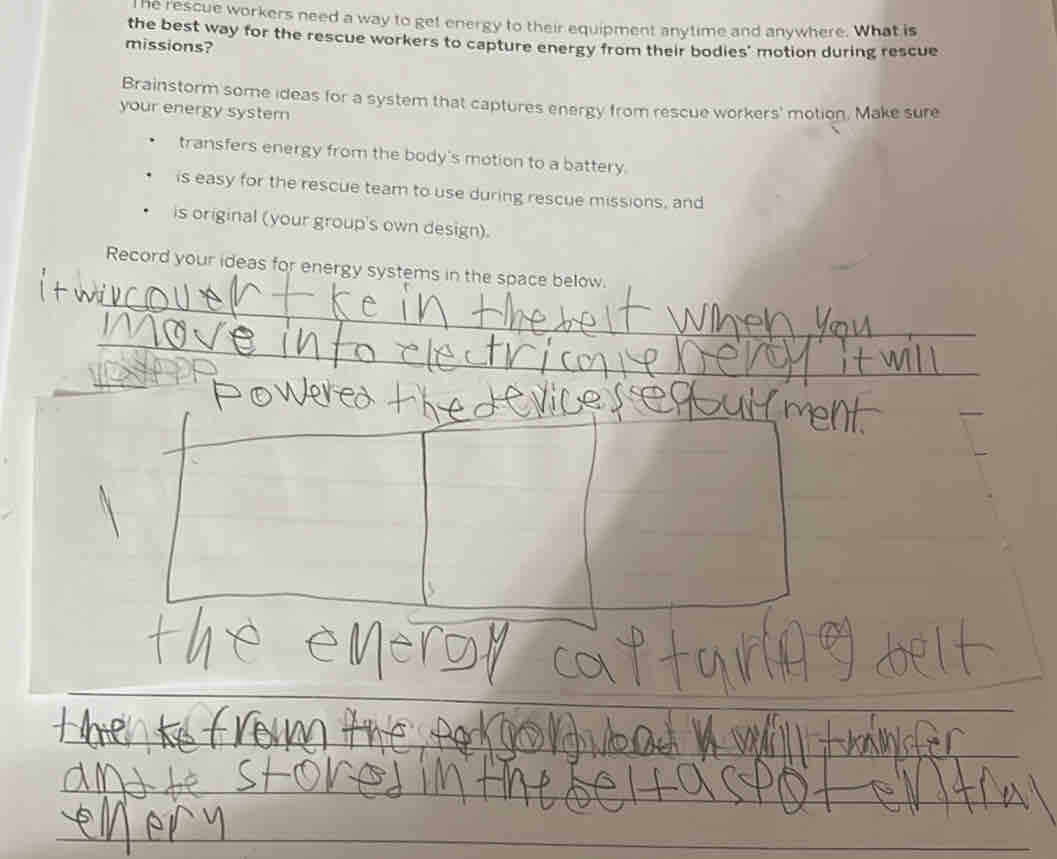 The rescue workers need a way to get energy to their equipment anytime and anywhere. What is
the best way for the rescue workers to capture energy from their bodies' motion during rescue
missions?
Brainstorm some ideas for a system that captures energy from rescue workers' motion. Make sure
your energy system
• transfers energy from the body's motion to a battery,
• is easy for the rescue team to use during rescue missions, and
• is original (your group's own design).
Record your ideas for energy systems in the space below.
it will covert ke in the belt when you
move into electrical energy it will
powered the devices
the energy capturing belt
the ke from the body will transfer
and be stored in the belt as potential
enery